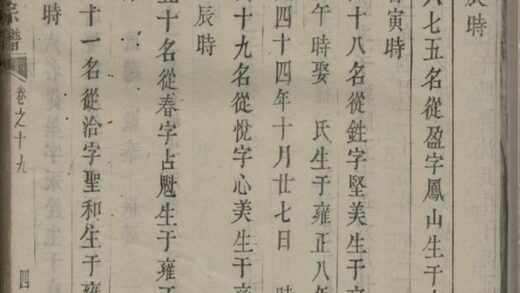 辰時
七五名從盈字鳳山生于
寅時
十八名從鉎字堅美生于
午時娶 氏生于雍正八年
四十四年十月廿七日 時
十九名從悅字心美生于雍
辰時
五十名從春字占魁生于雍正
十一名從洽字聖和生于雍
宗譜 卷之十九 四